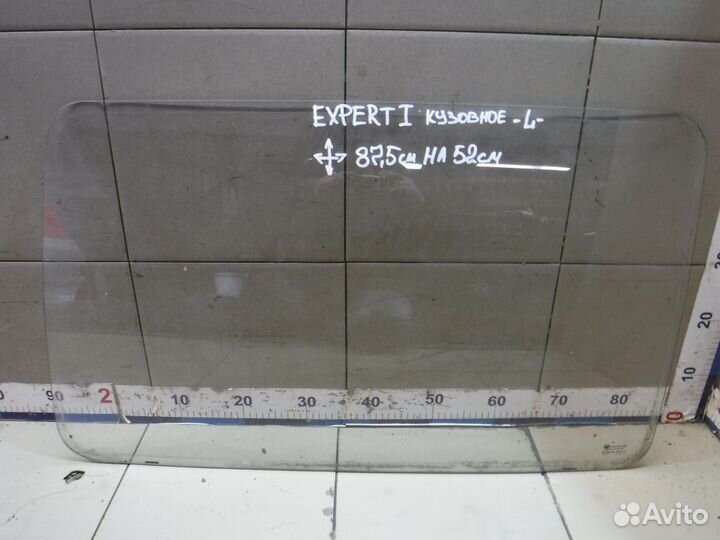 EXPERT I КУЗОВНОЕ -L-
87,5см НА 52см
20
10
0
90 2 10 20 30 40 50 60 70 80
Avito